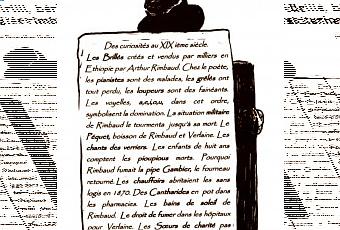 Des curiosités au XIX ième siècle.
Les Brillés créés et vendus par milliers en
Ethiopie par Arthur Rimbaud. Chez le poète,
les pianistes sont des malades, les grêlés ont
tout perdu, les loupeurs sont des fainéants.
Les voyelles, a,e,i,o,u, dans cet ordre,
symbolisent la domination. La situation militaire
de Rimbaud le tourmenta jusqu'à sa mort. Le
Péquet, boisson de Rimbaud et Verlaine. Les
chants des verriers. Les enfants de huit ans
comptent les pioupious morts. Pourquoi
Rimbaud fumait la pipe Gambier, le fourneau
retourné. Les chauffoirs abritaient les sans
logis en 1870. Des Cantharides en pot dans
les pharmacies. Les bains de soleil de
Rimbaud. Le droit de fumer dans les hôpitaux
pour Verlaine. Les Sœurs de charité pas